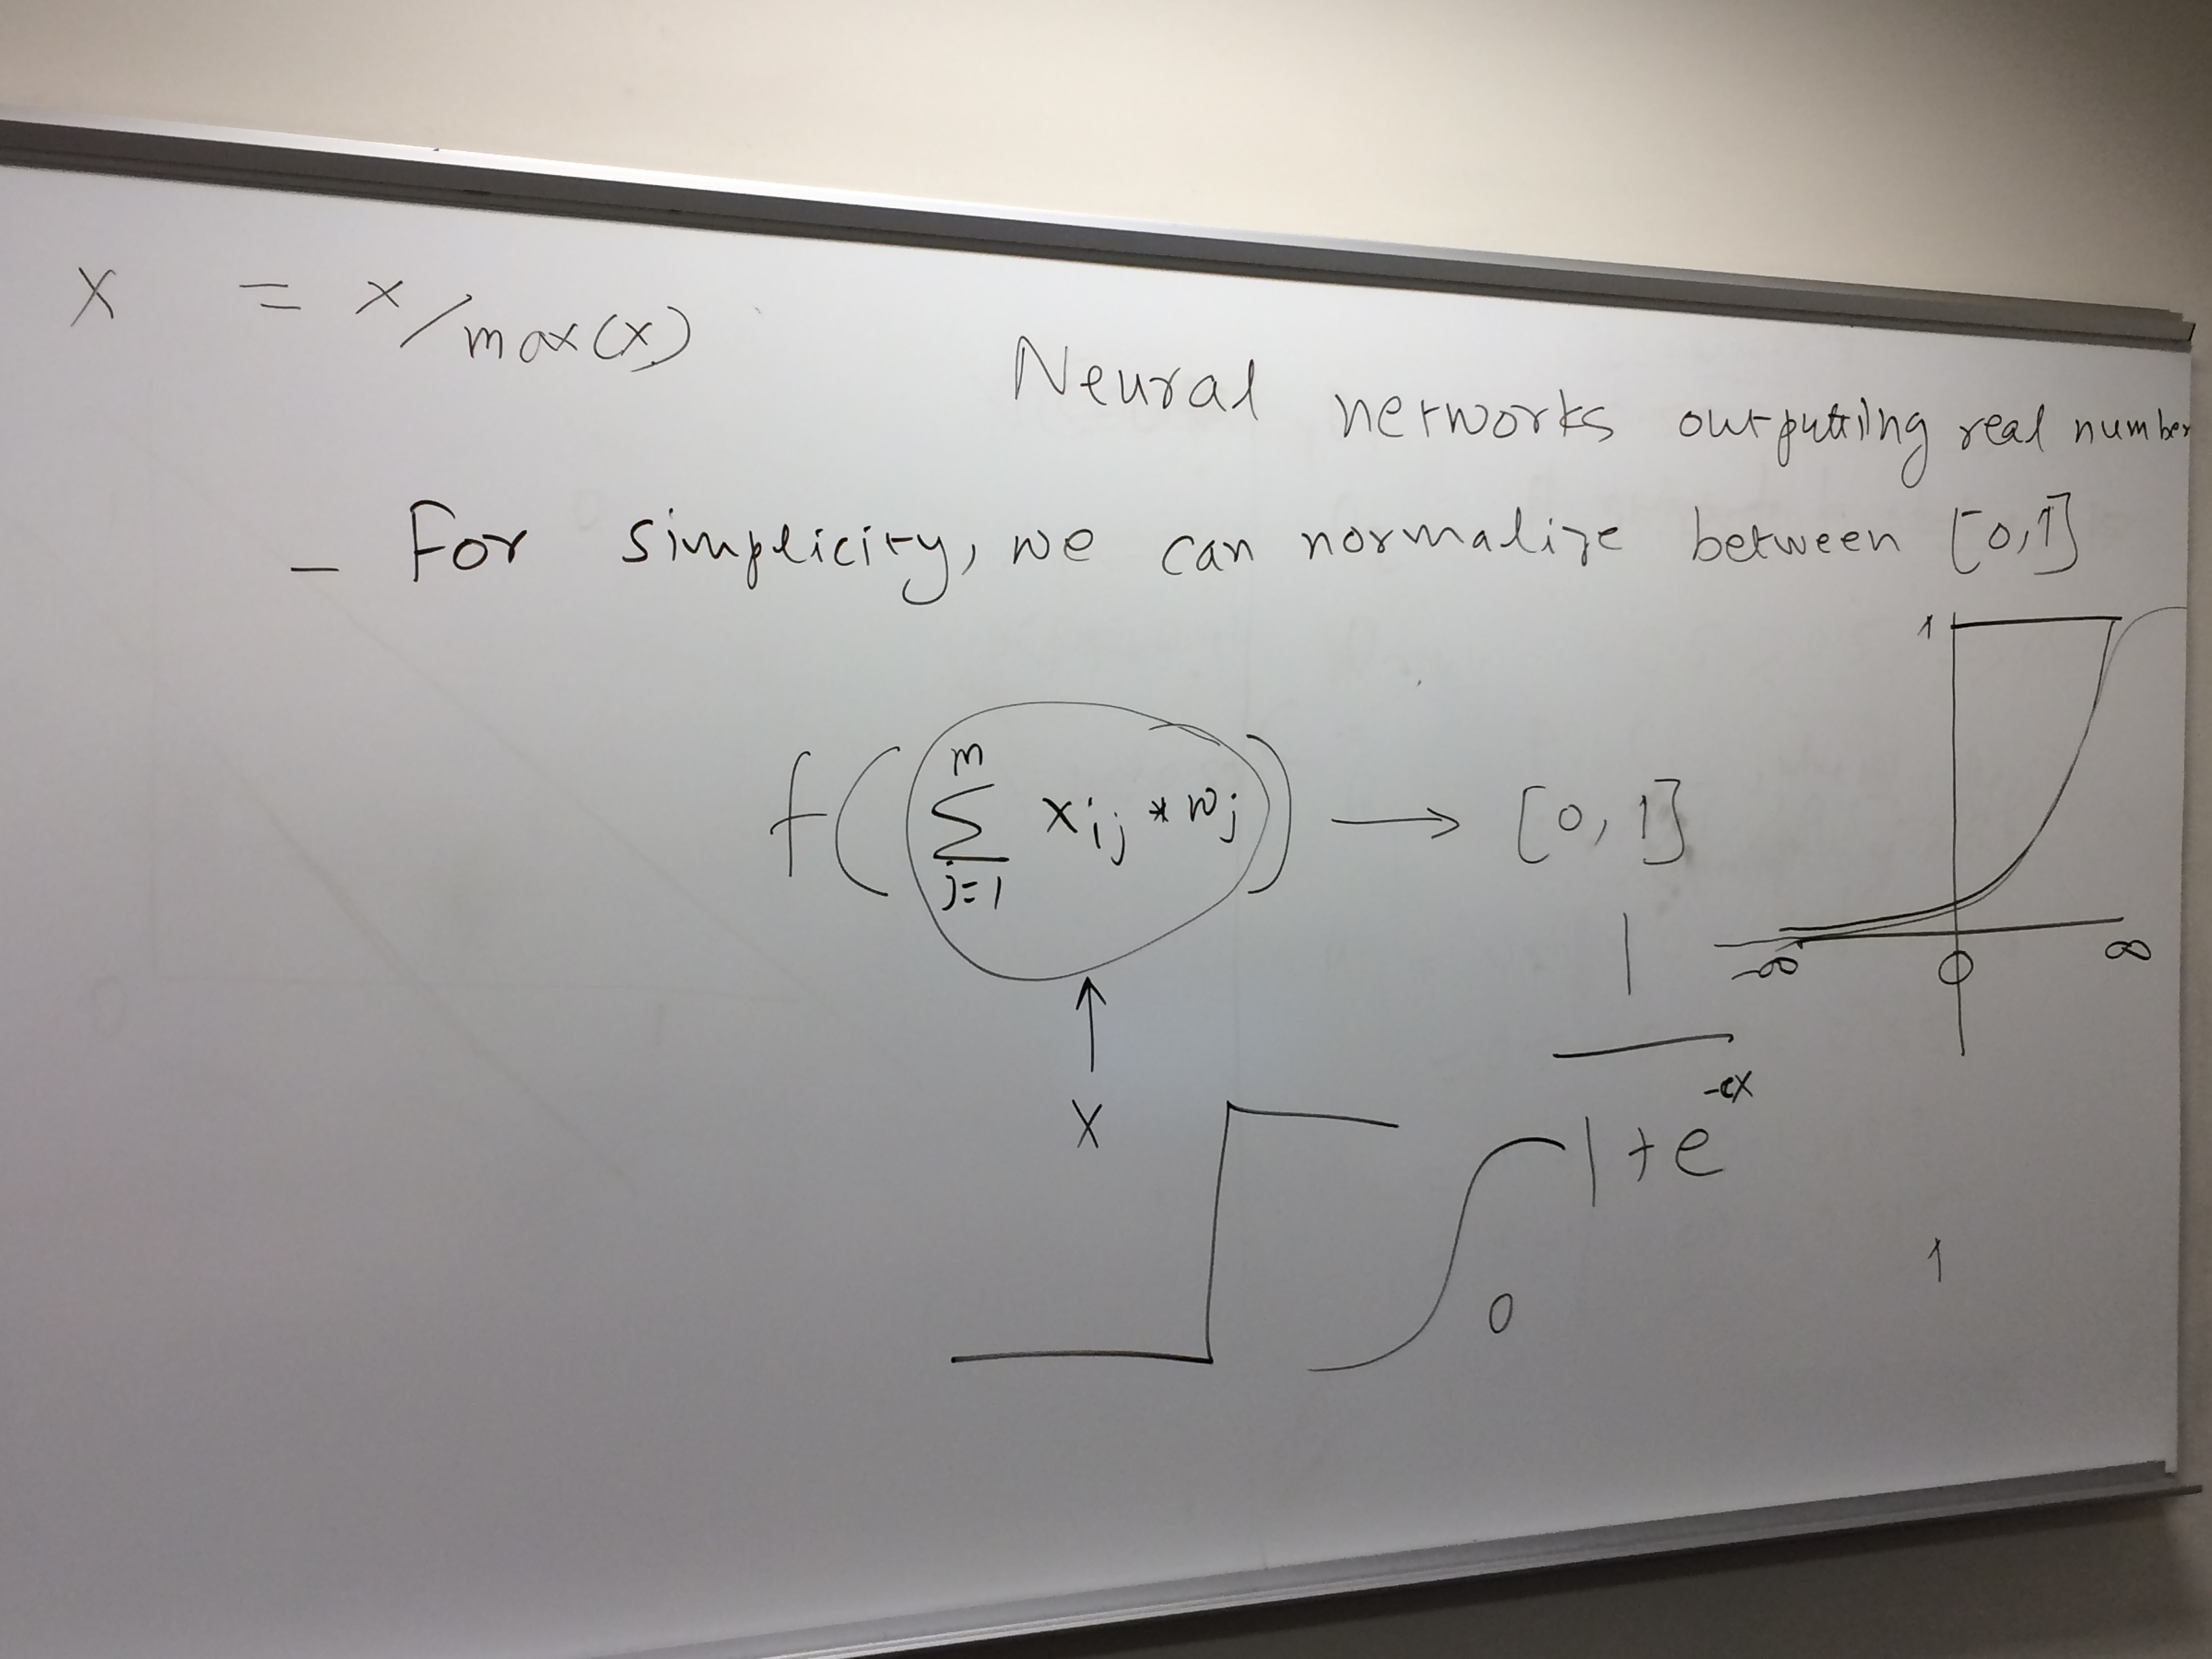 X = x/max(x)
Neural networks outputting real number
- For simplicity, we can normalize between [0,1]
1
f( m ∑ j=1 xij * wj ) → [0, 1]
-∞ 0 ∞
X
1
1+e^-cx
0 1